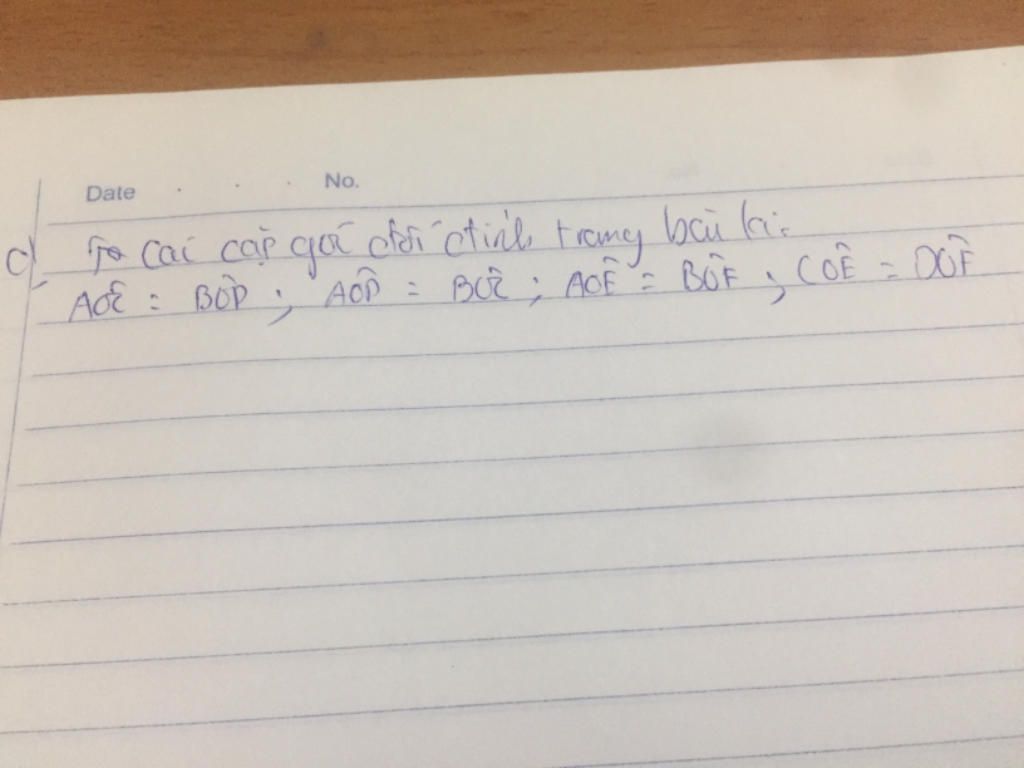 Date . . . No.
c) Ta các cặp góc đối đỉnh trong bài là:
AOĈ = BOD̂ ; AOD̂ = BOĈ ; AOÊ = BOF̂ ; COÊ = DOF̂